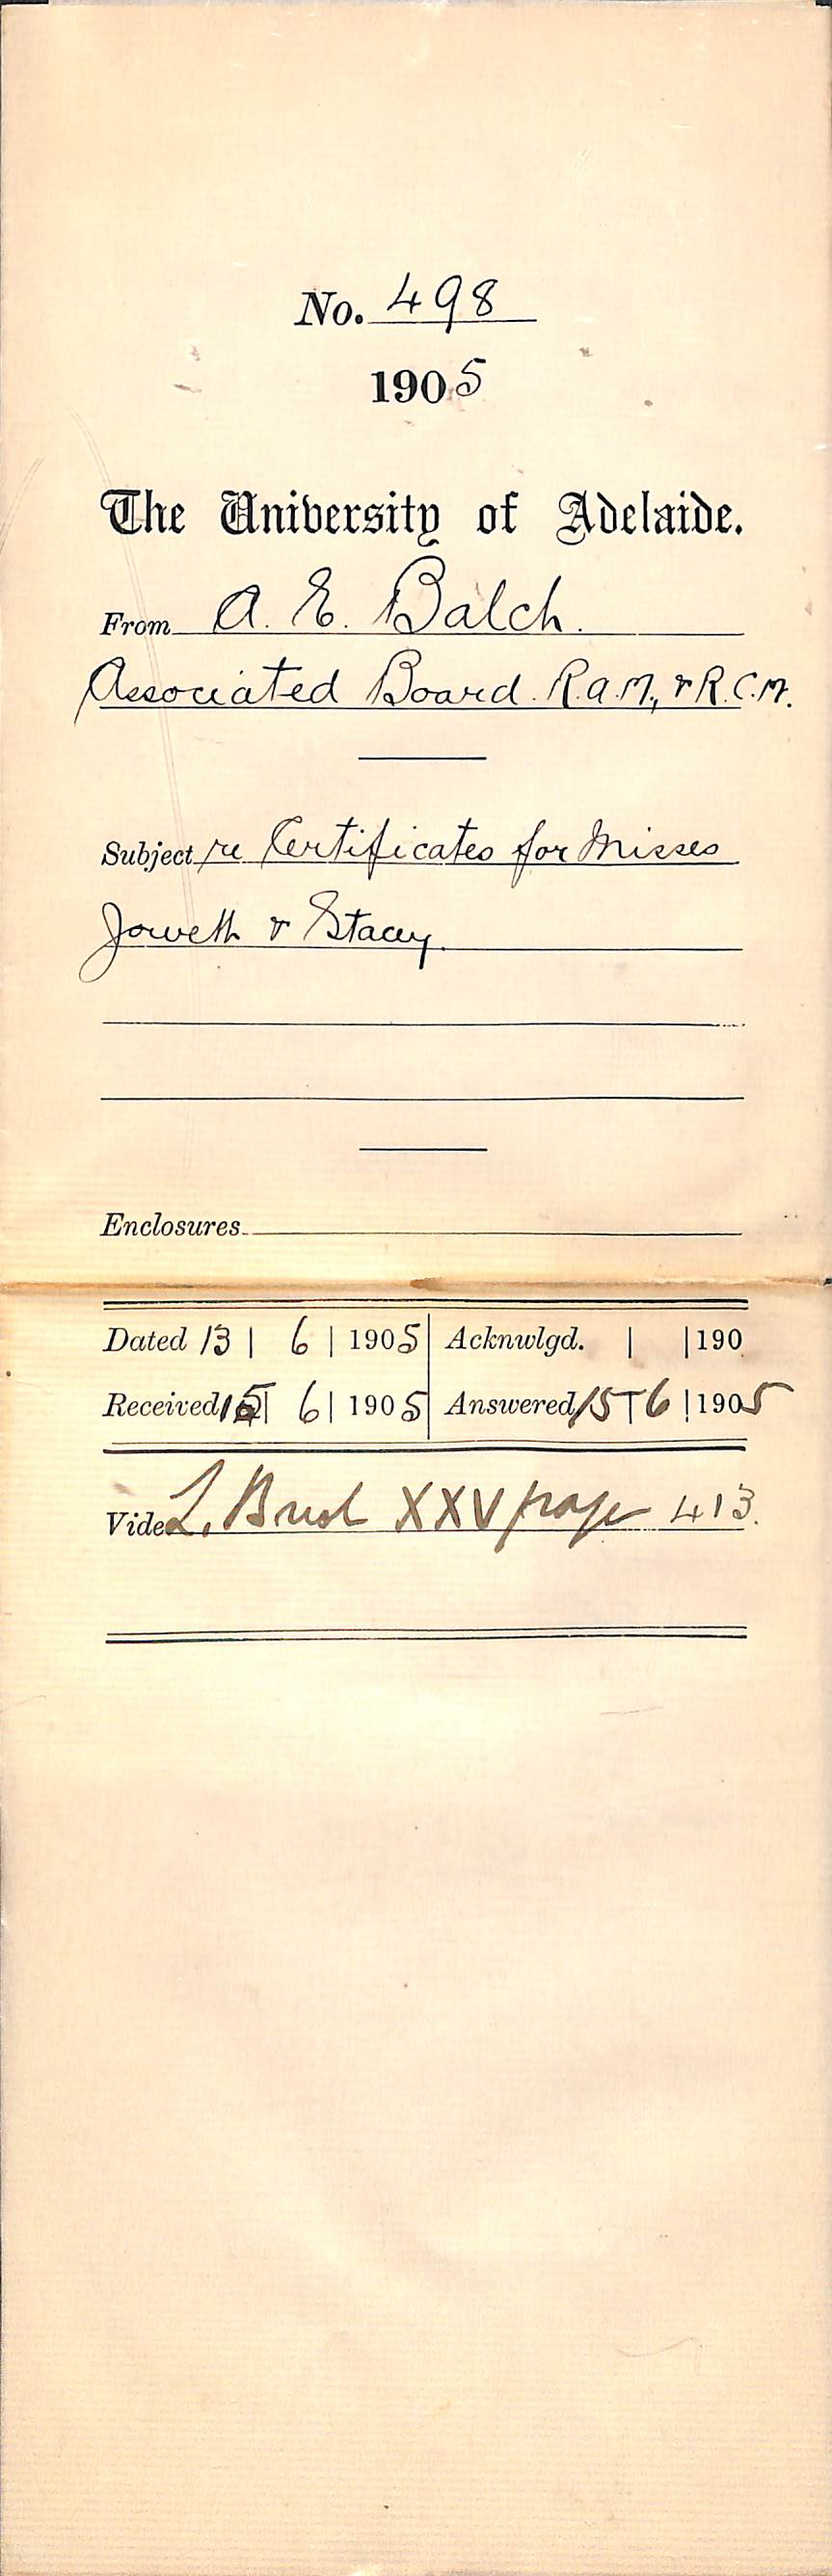 No. 498
1905
The University of Adelaide.
From A. E. Balch.
Associated Board. R.A.M., & R.C.M.
Subject re Certificates for Misses
Jowett & Stacey.
Enclosures
Dated 13 | 6 | 1905 Acknwlgd. | | 190
Received 15 | 6 | 1905 Answered 15 | 6 | 1905
Vide L. XXV page 413.